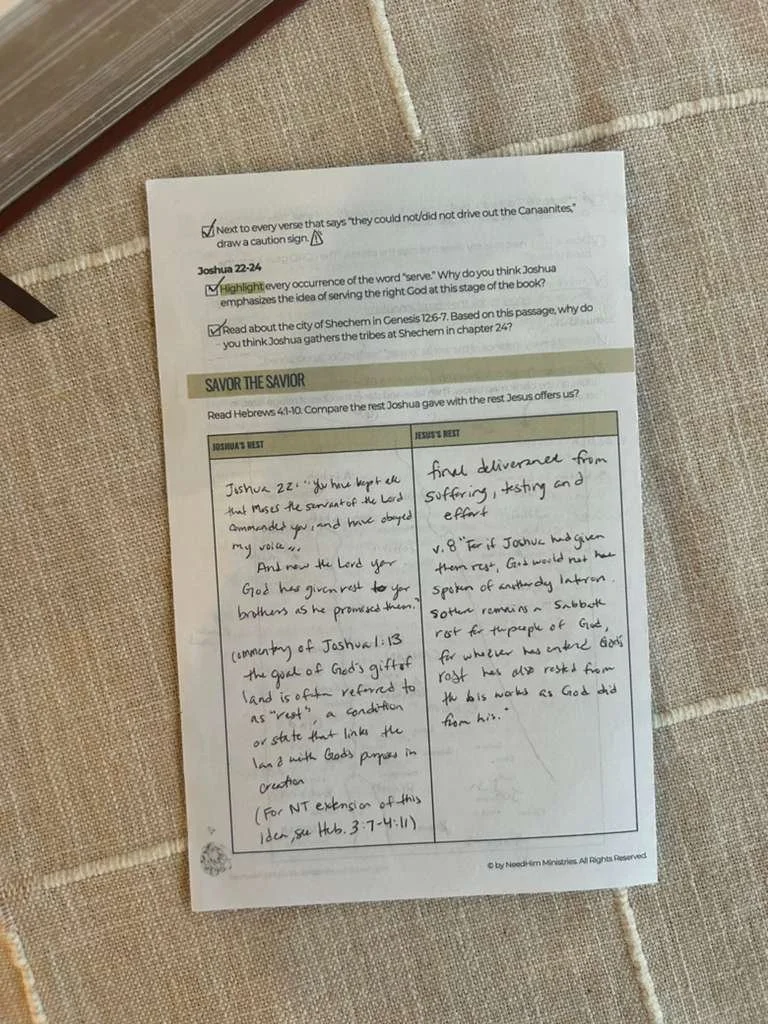 Next to every verse that says "they could not/did not drive out the Canaanites,"
draw a caution sign.
Joshua 22-24
Highlight every occurrence of the word "serve." Why do you think Joshua
emphasizes the idea of serving the right God at this stage of the book?
Read about the city of Shechem in Genesis 12:6-7. Based on this passage, why do
you think Joshua gathers the tribes at Shechem in chapter 24?
SAVOR THE SAVIOR
Read Hebrews 4:1-10. Compare the rest Joshua gave with the rest Jesus offers us?
JOSHUA'S REST
Joshua 22: "You have kept all
that Moses the servant of the Lord
commanded you, and have obeyed
my voice...
And now the Lord your
God has given rest to your
brothers as he promised them."
commentary of Joshua 1:13
the goal of God's gift of
land is often referred to
as "rest", a condition
or state that links the
land with God's purposes in
creation
(For NT extension of this
idea, see Heb. 3:7-4:11)
JESUS'S REST
final deliverance from
suffering, testing and
effort
v. 8 "For if Joshua had given
them rest, God would not have
spoken of another day later on.
So there remains a Sabbath
rest for the people of God,
for whoever has entered God's
rest has also rested from
his works as God did
from his."
© by NeedHim Ministries. All Rights Reserved.